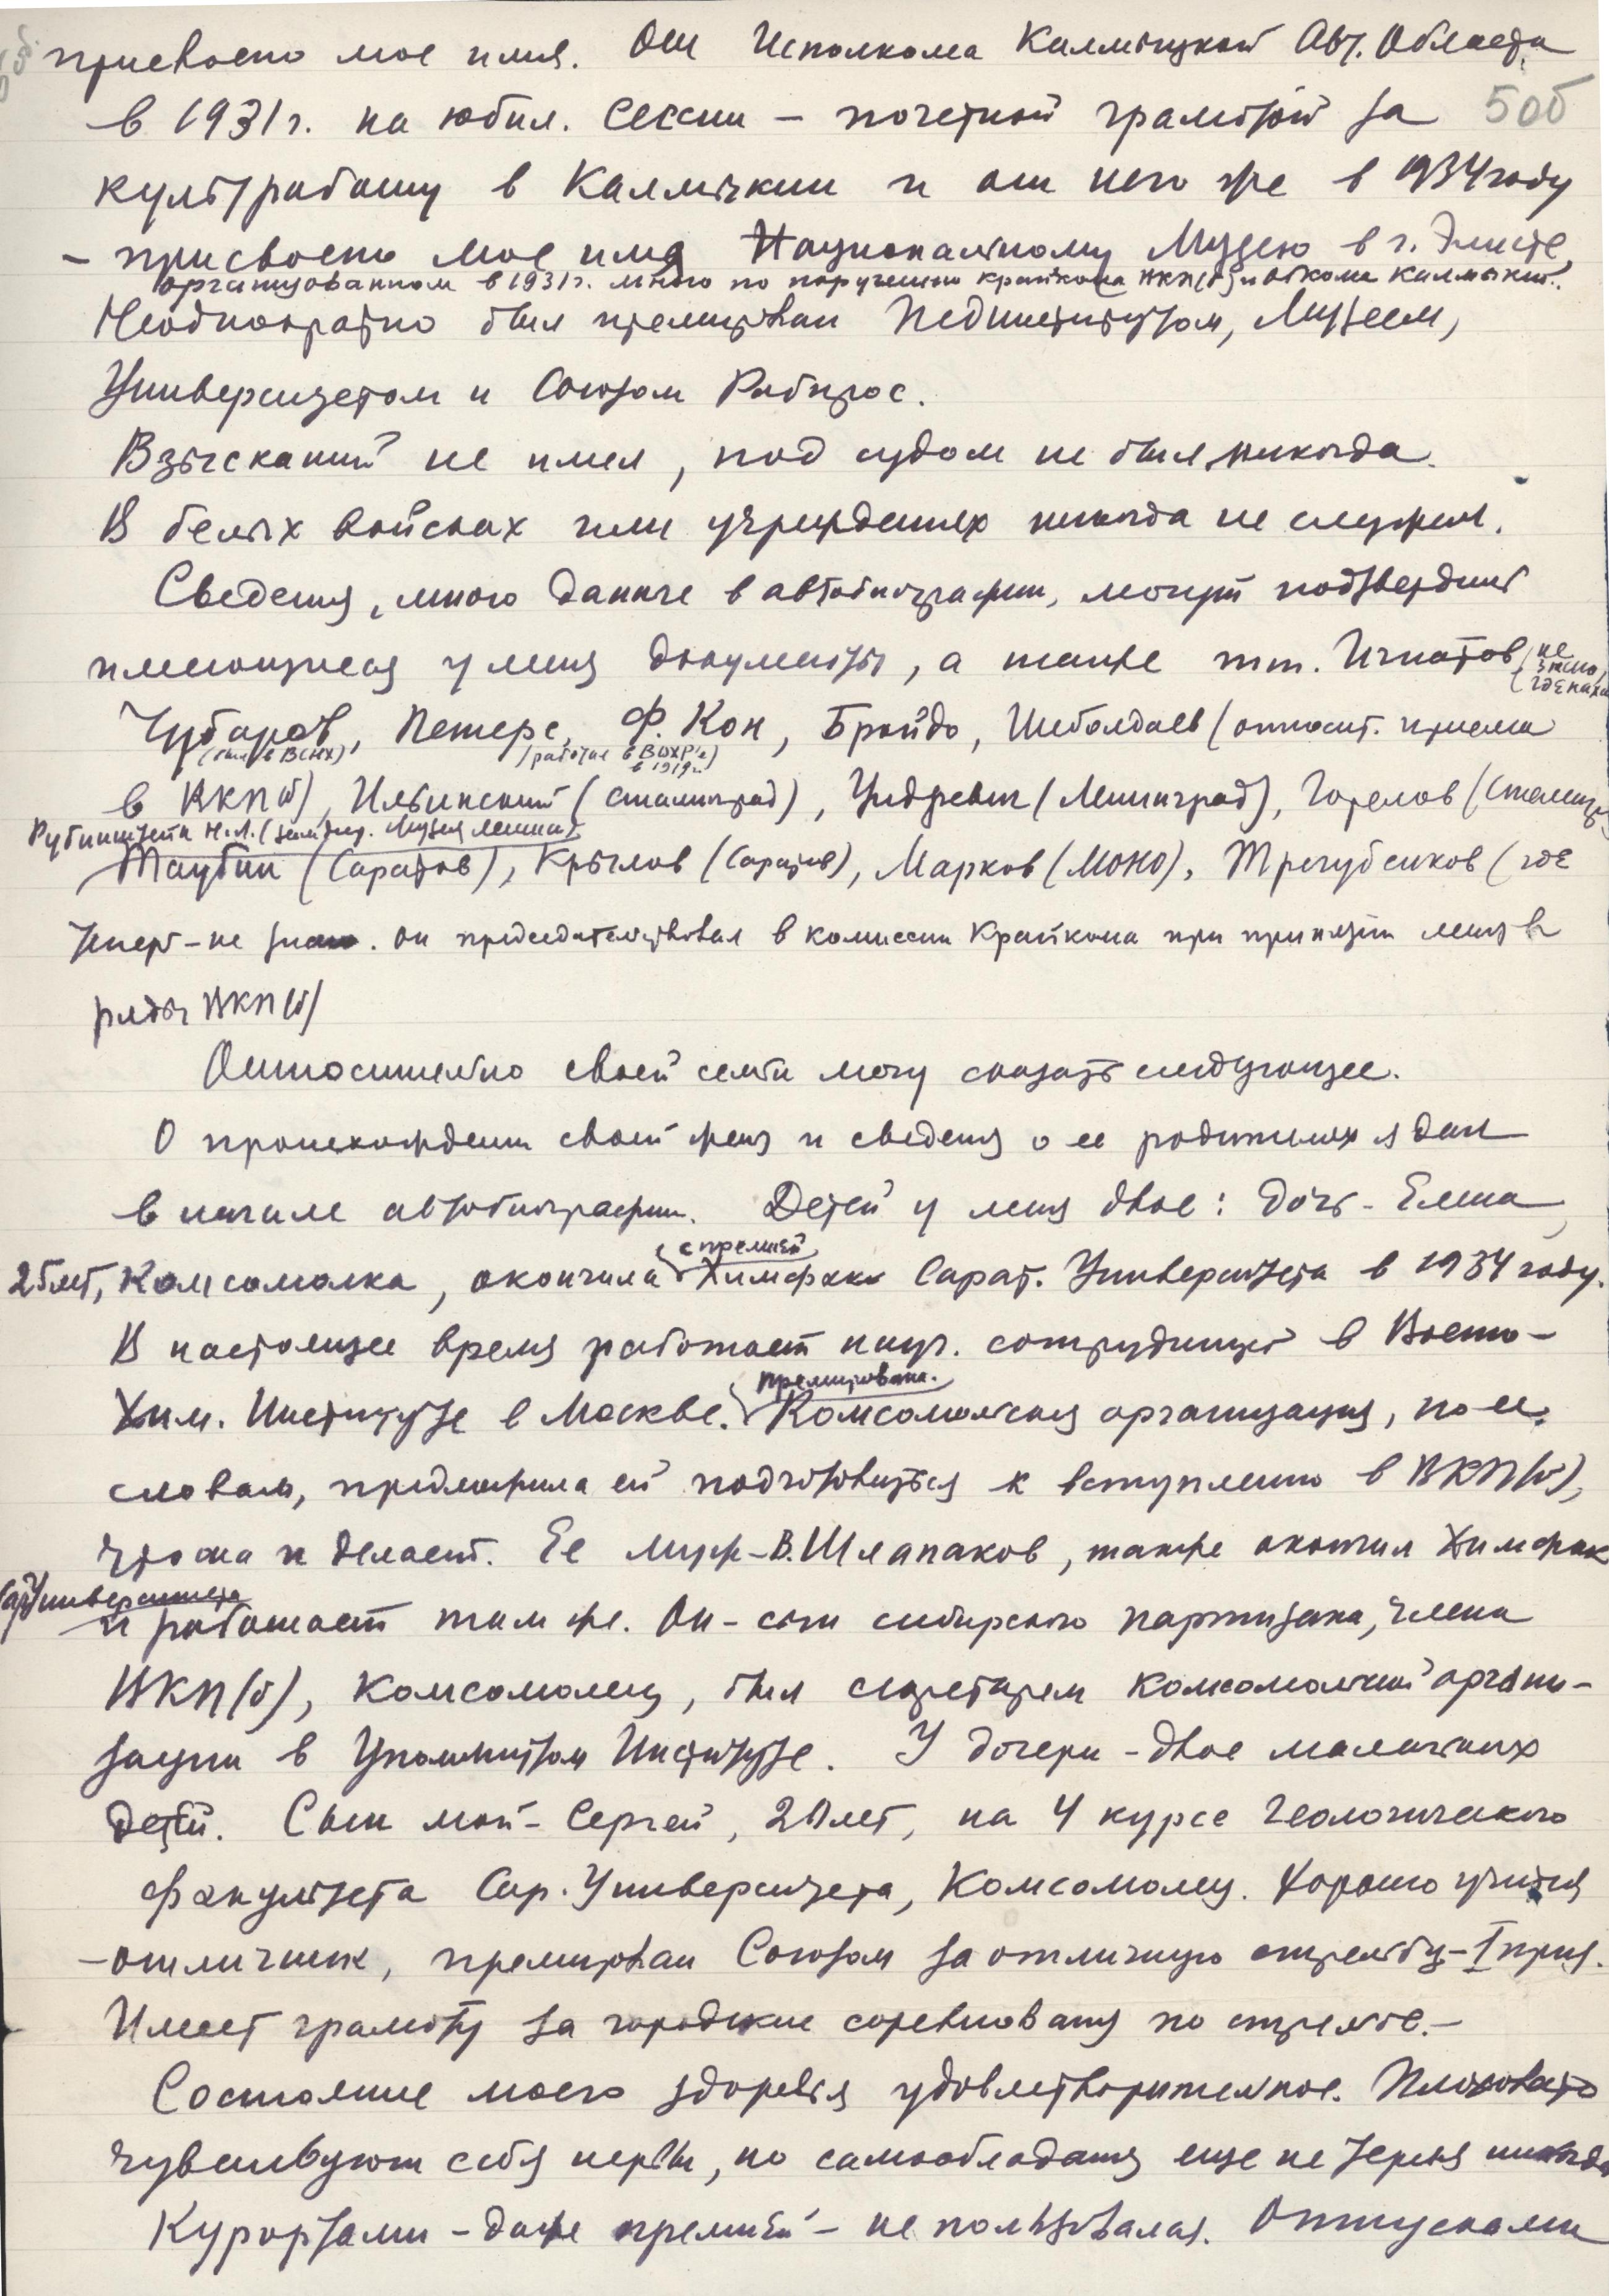 присвоено мое имя. От Исполкома Калмыцкой Авт. Области
в 1931 г. на юбил. сессии – почетной грамотой за 50б
культработу в Калмыкии и от него же в 1934 году
– присвоено мое имя Национальному Музею в г. Элисте,
организованном в 1931 г. мною по поручению крайкома ВКП(б) и Обкома Калмыкии.
Неоднократно был премирован Пединститутом, Музеем,
Университетом и Союзом Рабпрос.
Взысканий не имел, под судом не был никогда.
В белых войсках или учреждениях никогда не служил.
Сведения, мною данные в автобиографии, могут подтвердить
имеющиеся у меня документы, а также т.т. Игнатов (не
знаю,
где нахо
Чубаров, Петерс, Ф. Кон, Бройдо, Шеболдаев (относит. приема
(был в ВСНХ) (работал в ВОХР'е)
в 1919 г.
в ВКП(б), Ильинский (Сталинград), (Ленинград), Горелов (Сталингр
Рубинштейн Н.Л. (зам. дир. Музея Ленина)
Таубин (Саратов), Крылов (Саратов), Марков (МОНО), Трегубенков (где
теперь – не знаю. Он председательствовал в комиссии Крайкома при принятии меня в
ряды ВКП(б)
Относительно своей семьи могу сказать следующее.
О происхождении своей жены и сведения о ее родителях я дал
в начале автобиографии. Детей у меня двое: дочь – Елена
25 лет, Комсомолка, окончила Химфак Сарат. Университета в 1934 году.
с премией
В настоящее время работает науч. сотрудницей в Военно-
Хим. Институте в Москве. Комсомольская организация, по ее
премирована.
словам, предложила ей подготовиться к вступлению в ВКП(б),
что она и делает. Ее муж – В. Шлапаков, также окончил Химфак
Сар. Университета
и работает там же. Он – сын сибирского партизана, члена
ВКП(б), комсомолец, был секретарем комсомольской органи-
зации в упомянутом Институте. У дочери – двое маленьких
детей. Сын мой – Сергей, 20 лет, на 4 курсе Геологического
факультета Сар. Университета, Комсомолец. Хорошо учится
– отличник, премирован Союзом за отличную стрельбу – I приз.
Имеет грамоту за городские соревнования по стрельбе. –
Состояние моего здоровья удовлетворительное. Плоховато
чувствуют себя нервы, но самообладания еще не терял никогда
Курортами – даже премией – не пользовался. Отпусками